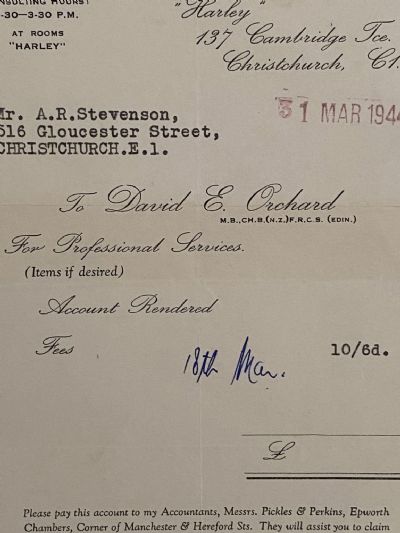 CONSULTING HOURS:
-30—3-30 P.M.
AT ROOMS
"HARLEY"
"Harley"
137 Cambridge Tce.
Christchurch, C1.
31 MAR 1944
Mr. A.R.Stevenson,
516 Gloucester Street,
CHRISTCHURCH.E.1.
To David E. Orchard
M.B.,CH.B.(N.Z.)F.R.C.S. (EDIN.)
For Professional Services.
(Items if desired)
Account Rendered
Fees
18th Mar.
10/6d.
£
Please pay this account to my Accountants, Messrs. Pickles & Perkins, Epworth
Chambers, Corner of Manchester & Hereford Sts. They will assist you to claim